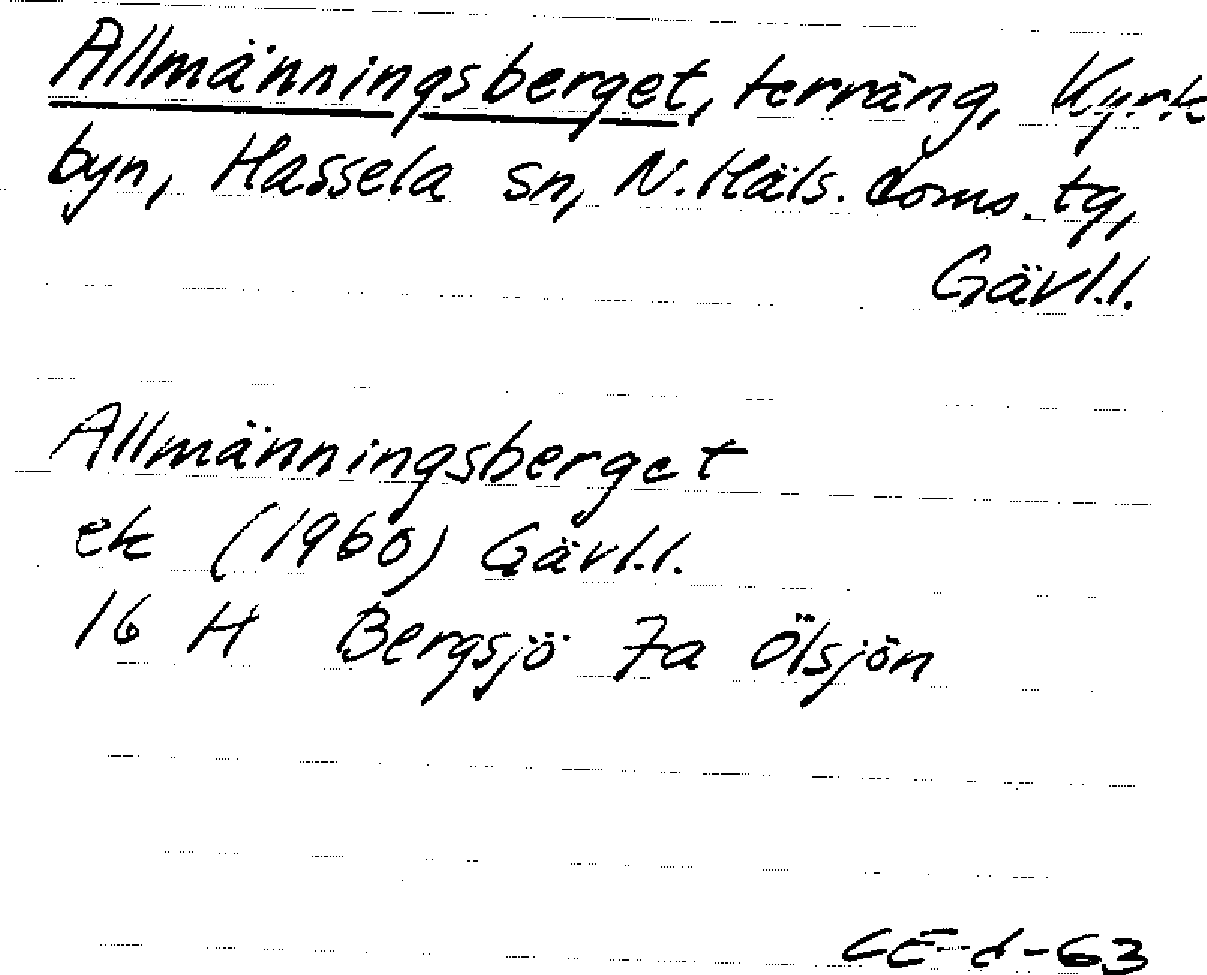 Allmänningsberget, terräng, Kyrk
byn, Hassela sn, N. Häls. doms. tg,
Gävl.l.
Allmänningsberget
ek (1960) Gävl.l.
16 H Bergsjö 7a Ölsjön
CE-d-63